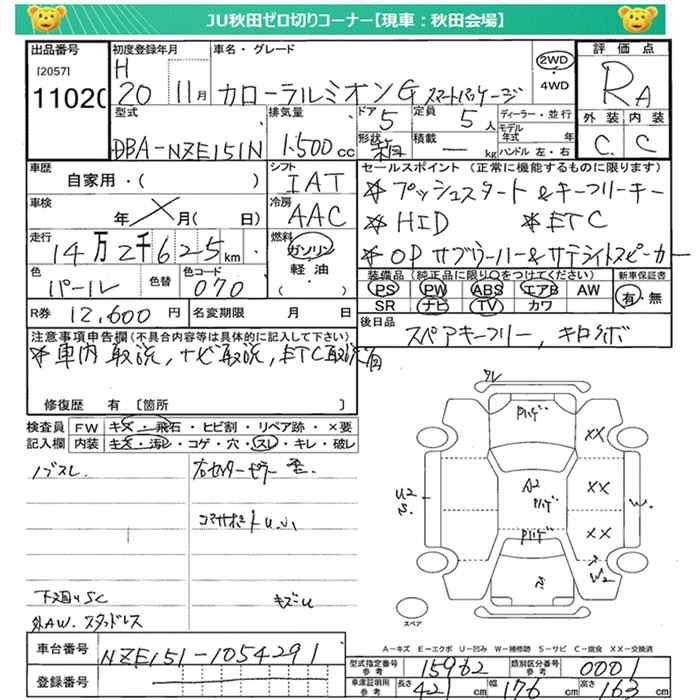 JU秋田ゼロ切りコーナー【現車：秋田会場】
出品番号 初度登録年月 車名・グレード 評価点
[2057] H 2WD
1102 20 11月 カローラルミオンG スマートパッケージ 4WD RA
型式 排気量 ドア 定員 ディーラー・並行 外装 内装
DBA-NZE151N 1.500cc 5 5人 モデル年式 年 C C
形状 箱 積載 ー kg ハンドル 左・右
車歴 シフト セールスポイント（正常に機能するものに限ります）
自家用・( ) IAT ＊プッシュスタート＆キーフリーキー
車検 冷房 ＊HID ＊ETC
年 月( 日) AAC ＊OP サブウーハー＆サテライトスピーカー
走行 燃料
14万2千625km ガソリン 装備品（純正品に限り○をつけてください） 新車保証書
色 色替 色コード 軽油 PS PW ABS エアB AW 有・無
パール 070 ・( ) SR ナビ TV カワ
R券 12,600円 名変期限 月 日 後日品
スペアキーフリー,キロクボ
注意事項申告欄（不具合内容等は具体的に記入して下さい）
＊車内取説,ナビ取説,ETC取説有
修復歴 有 [箇所 ]
検査員 FW キズ・飛石・ヒビ割・リペア跡・×要
記入欄 内装 キズ・汚レ・コゲ・穴・スレ・キレ・破レ
ノブスレ. 右センターピラー歪.
コアサポートU.U1
下廻りSC キズU
別AW.スタッドレス
スペア
A-キズ E-エクボ U-凹み W-補修跡 S-サビ C-腐食 XX-交換済
車台番号 NZE151-1054291
登録番号
型式指定番号参考 15962 類別区分番号参考 0001
車庫証明用参考 長さ421cm 幅176cm 高さ163cm
A2
パリゲ
パリゲ
パリゲ
XX
XX
XX
U2
S.
W.
W2
S